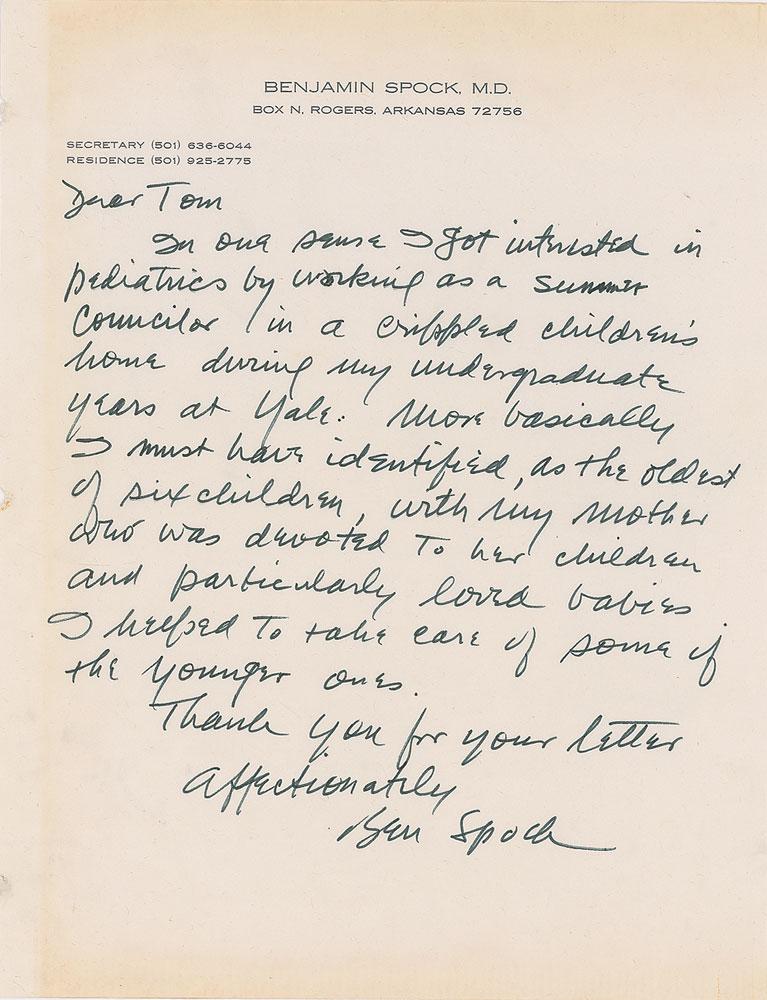 BENJAMIN SPOCK, M.D.
BOX N, ROGERS, ARKANSAS 72756
SECRETARY (501) 636-6044
RESIDENCE (501) 925-2775
Dear Tom
In one sense I got interested in
pediatrics by working as a summer
Councilor in a crippled children's
home during my undergraduate
years at Yale. More basically
I must have identified, as the oldest
of six children, with my mother
who was devoted to her children
and particularly loved babies
I helped to take care of some of
the younger ones.
Thank you for your letter
Affectionately
Ben Spock